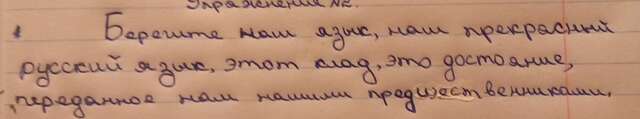 Упражнение №2.
Берегите наш язык, наш прекрасный
русский язык, этот клад, это достояние,
переданное нам нашими предшественниками.